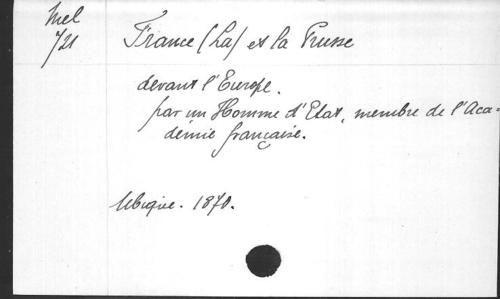 Mel
721
France (La) et la Prusse
devant l'Europe.
par un Homme d'Etat, membre de l'Aca-
démie française.
Ubique. 1870.